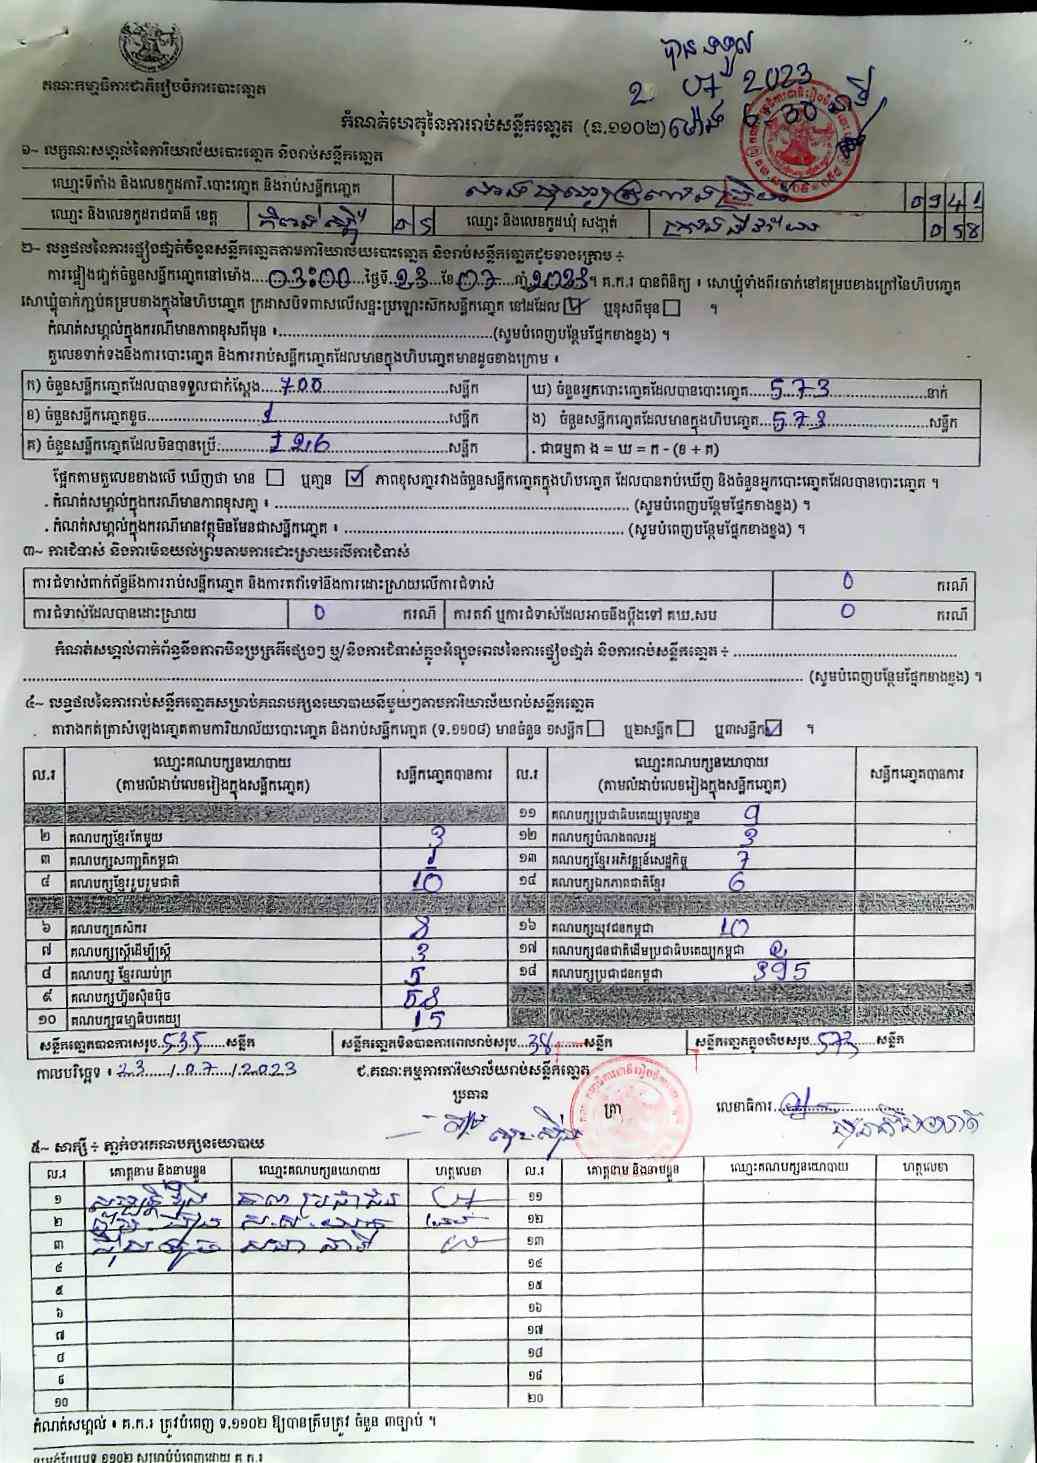 បានទទួល
2 07 2023
គណៈកម្មាធិការជាតិរៀបចំការបោះឆ្នោត
កំណត់ហេតុនៃការរាប់សន្លឹកឆ្នោត (ទ.១១០២) ម៉ោង 6-30 នាទី
១~ លក្ខណៈសម្គាល់នៃការិយាល័យបោះឆ្នោត និងរាប់សន្លឹកឆ្នោត
ឈ្មោះទីតាំង និងលេខកូដការិ.បោះឆ្នោត និងរាប់សន្លឹកឆ្នោត 0941
ឈ្មោះ និងលេខកូដរាជធានី ខេត្ត កំពង់ស្ពឺ 05 ឈ្មោះ និងលេខកូដឃុំ សង្កាត់ 058
២~ លទ្ធផលនៃការផ្ទៀងផ្ទាត់ចំនួនសន្លឹកឆ្នោតតាមការិយាល័យបោះឆ្នោត និងរាប់សន្លឹកឆ្នោតដូចខាងក្រោម ÷
ការផ្ទៀងផ្ទាត់ចំនួនសន្លឹកឆ្នោតនៅម៉ោង....03:00....ថ្ងៃទី.23...ខែ.07...ឆ្នាំ.2023។ គ.ក.រ បានពិនិត្យ ៖ សោឃ្មុំទាំងពីរចាក់នៅគម្របខាងក្រៅនៃហិបឆ្នោត
សោឃ្មុំចាក់ភ្ជាប់គម្របខាងក្នុងនៃហិបឆ្នោត ក្រដាសបិទពាសលើសន្ទះប្រឡោះសៀកសន្លឹកឆ្នោត នៅដដែល ☑ ឬខុសពីមុន ☐ ។
កំណត់សម្គាល់ក្នុងករណីមានភាពខុសពីមុន ៖..........(សូមបំពេញបន្ថែមផ្នែកខាងខ្នង) ។
តួលេខទាក់ទងនឹងការបោះឆ្នោត និងការរាប់សន្លឹកឆ្នោតដែលមានក្នុងហិបឆ្នោតមានដូចខាងក្រោម ៖
ក) ចំនួនសន្លឹកឆ្នោតដែលបានទទួលជាក់ស្តែង....700....សន្លឹក ឃ) ចំនួនអ្នកបោះឆ្នោតដែលបានបោះឆ្នោត....573....នាក់
ខ) ចំនួនសន្លឹកឆ្នោតខូច....1....សន្លឹក ង) ចំនួនសន្លឹកឆ្នោតដែលមានក្នុងហិបឆ្នោត...573....សន្លឹក
គ) ចំនួនសន្លឹកឆ្នោតដែលមិនបានប្រើ:....126....សន្លឹក . ជាធម្មតា ង = ឃ = ក - (ខ + គ)
ផ្អែកតាមតួលេខខាងលើ ឃើញថា មាន ☐ ឬគ្មាន ☑ ភាពខុសគ្នារវាងចំនួនសន្លឹកឆ្នោតក្នុងហិបឆ្នោត ដែលបានរាប់ឃើញ និងចំនួនអ្នកបោះឆ្នោតដែលបានបោះឆ្នោត ។
. កំណត់សម្គាល់ក្នុងករណីមានភាពខុសគ្នា ៖ .......... (សូមបំពេញបន្ថែមផ្នែកខាងខ្នង) ។
. កំណត់សម្គាល់ក្នុងករណីមានវត្ថុមិនមែនជាសន្លឹកឆ្នោត ៖ .......... (សូមបំពេញបន្ថែមផ្នែកខាងខ្នង) ។
៣~ ការជំទាស់ និងការមិនយល់ព្រមតាមការដោះស្រាយលើការជំទាស់
ការជំទាស់ពាក់ព័ន្ធនឹងការរាប់សន្លឹកឆ្នោត និងការតវ៉ាទៅនឹងការដោះស្រាយលើការជំទាស់ 0 ករណី
ការជំទាស់ដែលបានដោះស្រាយ 0 ករណី ការតវ៉ា ឬការជំទាស់ដែលអាចនឹងប្តឹងទៅ គឃ.សប 0 ករណី
កំណត់សម្គាល់ពាក់ព័ន្ធនឹងភាពមិនប្រក្រតីផ្សេងៗ ឬ/និងការជំទាស់ក្នុងអំឡុងពេលនៃការផ្ទៀងផ្ទាត់ និងការរាប់សន្លឹកឆ្នោត ÷ ..........
.......... (សូមបំពេញបន្ថែមផ្នែកខាងខ្នង) ។
៤~ លទ្ធផលនៃការរាប់សន្លឹកឆ្នោតសម្រាប់គណបក្សនយោបាយនីមួយៗតាមការិយាល័យរាប់សន្លឹកឆ្នោត
តារាងកត់ត្រាសំឡេងឆ្នោតតាមការិយាល័យបោះឆ្នោត និងរាប់សន្លឹកឆ្នោត (ទ.១១០៨) មានចំនួន ១សន្លឹក ☐ ឬ២សន្លឹក ☐ ឬ៣សន្លឹក ☑ ។
ល.រ ឈ្មោះគណបក្សនយោបាយ (តាមលំដាប់លេខរៀងក្នុងសន្លឹកឆ្នោត) សន្លឹកឆ្នោតបានការ ល.រ ឈ្មោះគណបក្សនយោបាយ (តាមលំដាប់លេខរៀងក្នុងសន្លឹកឆ្នោត) សន្លឹកឆ្នោតបានការ
១១ គណបក្សប្រជាធិបតេយ្យមូលដ្ឋាន 9
២ គណបក្សខ្មែរតែមួយ 3 ១២ គណបក្សបំណងពលរដ្ឋ 3
៣ គណបក្សសញ្ជាតិកម្ពុជា 1 ១៣ គណបក្សខ្មែរអភិវឌ្ឍន៍សេដ្ឋកិច្ច 7
៤ គណបក្សខ្មែររួបរួមជាតិ 10 ១៤ គណបក្សឯកភាពជាតិខ្មែរ 6
៦ គណបក្សកសិករ 8 ១៦ គណបក្សយុវជនកម្ពុជា 10
៧ គណបក្សស្ត្រីដើម្បីស្ត្រី 3 ១៧ គណបក្សជនជាតិដើមប្រជាធិបតេយ្យកម្ពុជា 2
៨ គណបក្ស ខ្មែរឈប់ក្រ 5 ១៨ គណបក្សប្រជាជនកម្ពុជា 395
៩ គណបក្សហ៊្វុនស៊ិនប៉ិច 58
១០ គណបក្សធម្មាធិបតេយ្យ 15
សន្លឹកឆ្នោតបានការសរុប.535....សន្លឹក សន្លឹកឆ្នោតមិនបានការពេលរាប់សរុប..38....សន្លឹក សន្លឹកឆ្នោតក្នុងហិបសរុប..573....សន្លឹក
កាលបរិច្ឆេទ ៖..23..../..07.../..2023 ជ.គណៈកម្មការការិយាល័យរាប់សន្លឹកឆ្នោត
ប្រធាន ត្រា លេខាធិការ
៥~ សាក្សី ÷ ភ្នាក់ងារគណបក្សនយោបាយ
ល.រ គោត្តនាម និងនាមខ្លួន ឈ្មោះគណបក្សនយោបាយ ហត្ថលេខា ល.រ គោត្តនាម និងនាមខ្លួន ឈ្មោះគណបក្សនយោបាយ ហត្ថលេខា
១ គណ ប្រជាជន ១១
២ ១២
៣ ១៣
៤ ១៤
៥ ១៥
៦ ១៦
៧ ១៧
៨ ១៨
៩ ១៩
១០ ២០
កំណត់សម្គាល់ ៖ គ.ក.រ ត្រូវបំពេញ ទ.១១០២ ឱ្យបានត្រឹមត្រូវ ចំនួន ៣ច្បាប់ ។
ទម្រង់បែបបទ ១១០២ សម្រាប់បំពេញដោយ គ.ក.រ